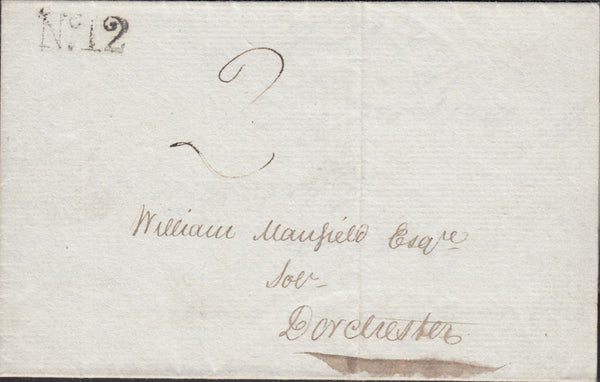 No. 12
2
William Manfield Esqre
Sol-
Dorchester